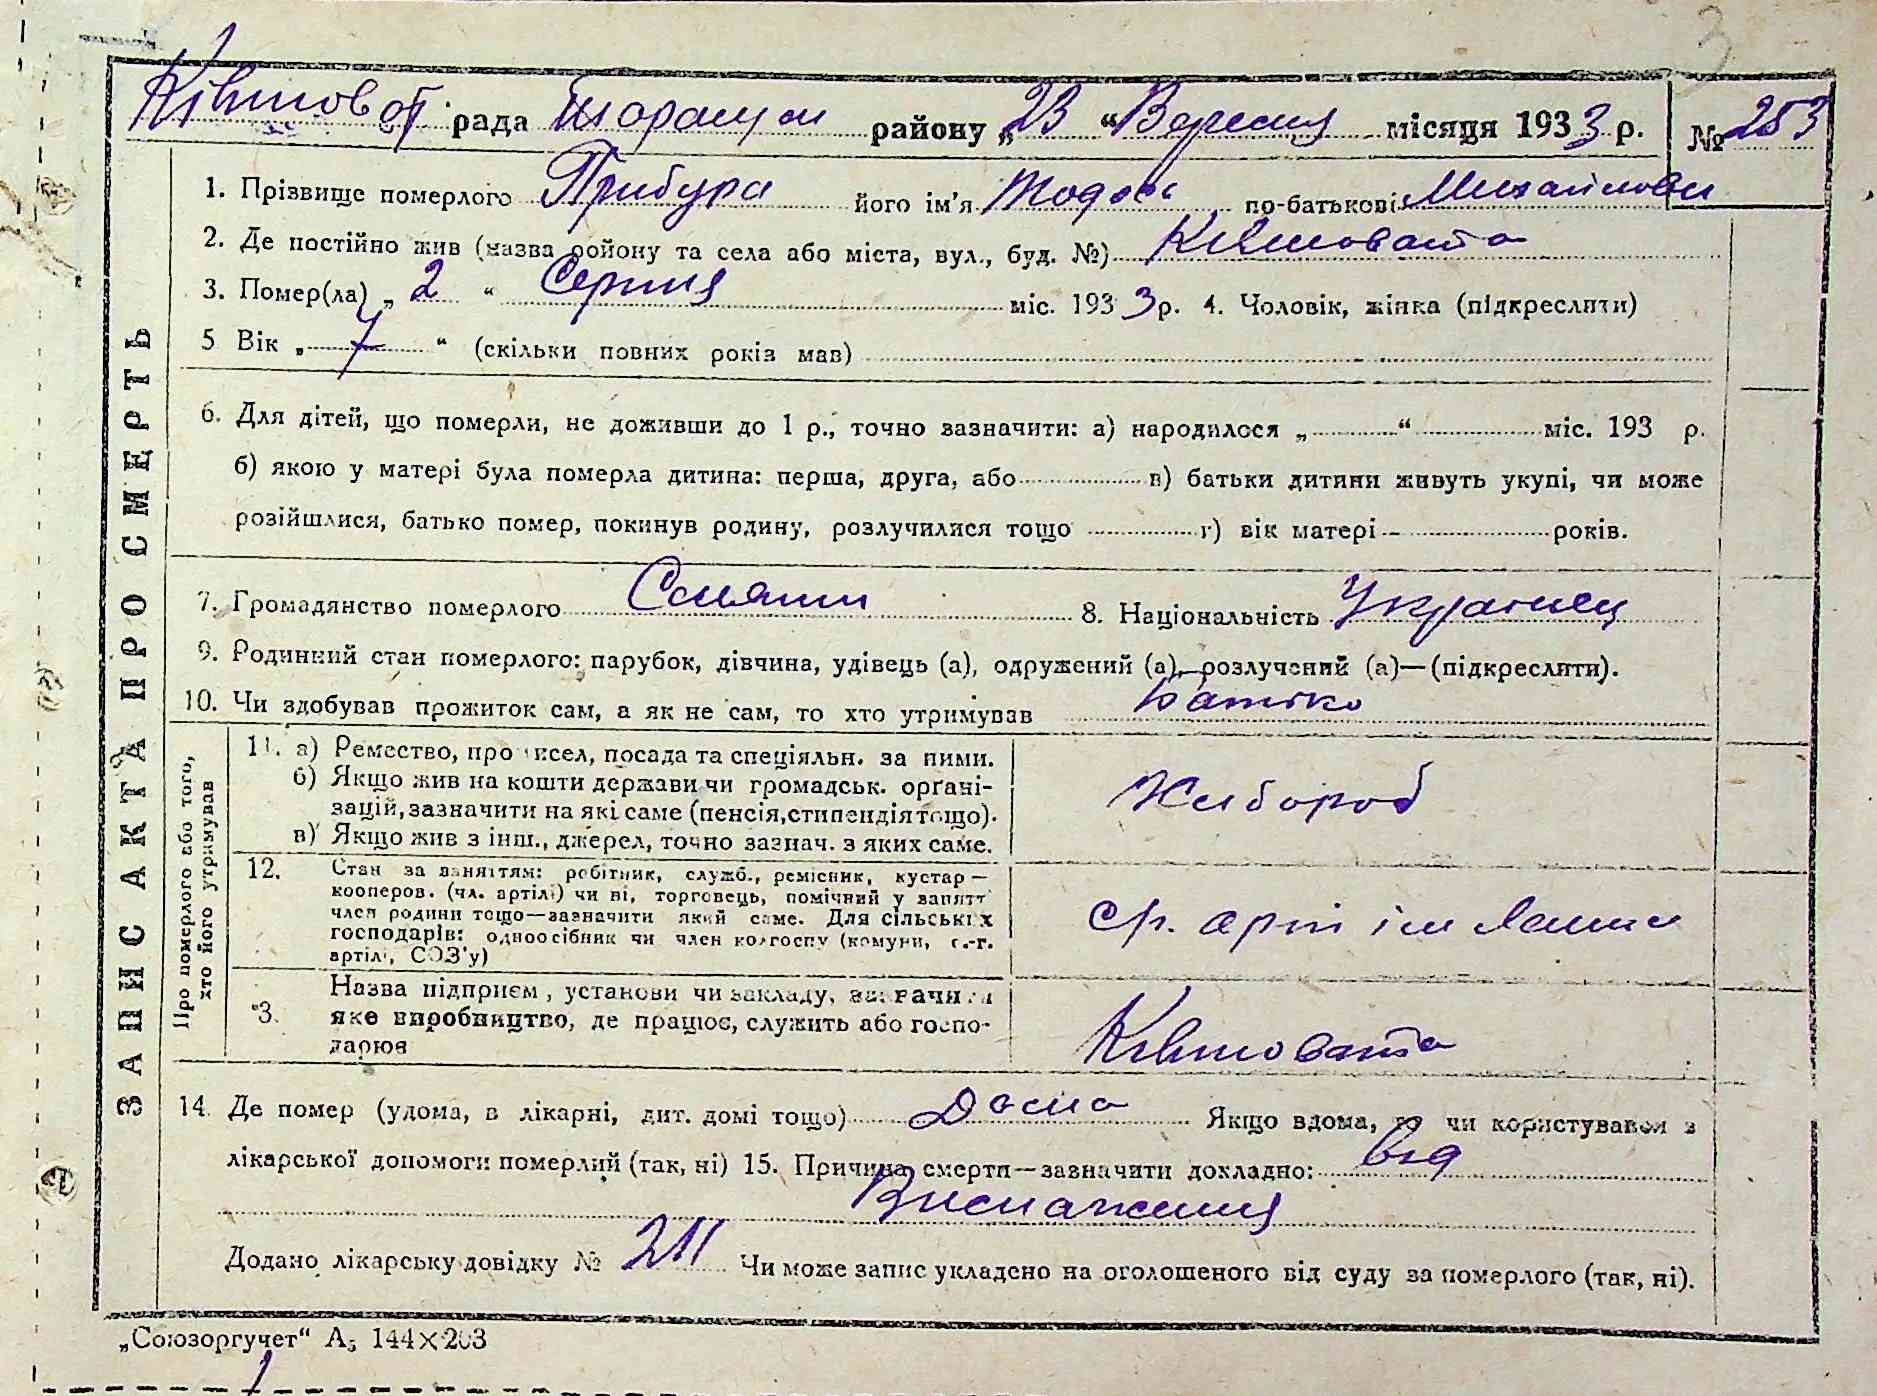 3
Ківшоват рада Таращан району „23“ Вересня місяця 1933 р. № 253
ЗАПИС АКТА ПРО СМЕРТЬ
1. Прізвище померлого Прибура його ім'я Тодось по-батькові Михайлови
2. Де постійно жив (назва району та села або міста, вул., буд. №) Ківшовата
3. Помер(ла) „2“ Серпня міс. 1933 р. 4. Чоловік, жінка (підкреслити)
5 Вік „7“ (скільки повних років мав)
6. Для дітей, що померли, не доживши до 1 р., точно зазначити: а) народилося „ “ міс. 193 р.
б) якою у матері була померла дитина: перша, друга, або в) батьки дитини живуть укупі, чи може
розійшлися, батько помер, покинув родину, розлучилися тощо г) вік матері років.
7. Громадянство померлого Селянин 8. Національність Украинец
9. Родинний стан померлого: парубок, дівчина, удівець (а), одружений (а), розлучений (а)—(підкреслити).
10. Чи здобував прожиток сам, а як не сам, то хто утримував Батько
Про померлого або того, хто його утримував
11. а) Ремество, про сел, посада та спеціяльн. за ними.
б) Якщо жив на кошти держави чи громадськ. органі-
зацій, зазначити на які саме (пенсія, стипендія тощо).
в) Якщо жив з інш., джерел, точно зазнач. з яких саме.
Хлібороб
12. Стан за заняттям: робітник, служб., ремісник, кустар—
кооперов. (чл. артілі) чи ні, торговець, помічний у занятт
член родини тощо—зазначити який саме. Для сільських
господарів: одноосібник чи член колгоспу (комуни, с.-г.
артілі, СОЗ'у)
Ср. арт ім Леніна
3. Назва підприєм, установи чи закладу, зазначити
яке виробництво, де працює, служить або госпо-
дарює
Ківшовата
14. Де помер (удома, в лікарні, дит. домі тощо) Дома Якщо вдома, то чи користувався з
лікарської допомоги померлий (так, ні) 15. Причина смерти—зазначити докладно: від
Виснаження
Додано лікарську довідку № 211 Чи може запис укладено на оголошеного від суду за померлого (так, ні).
„Союзоргучет“ А5 144×203